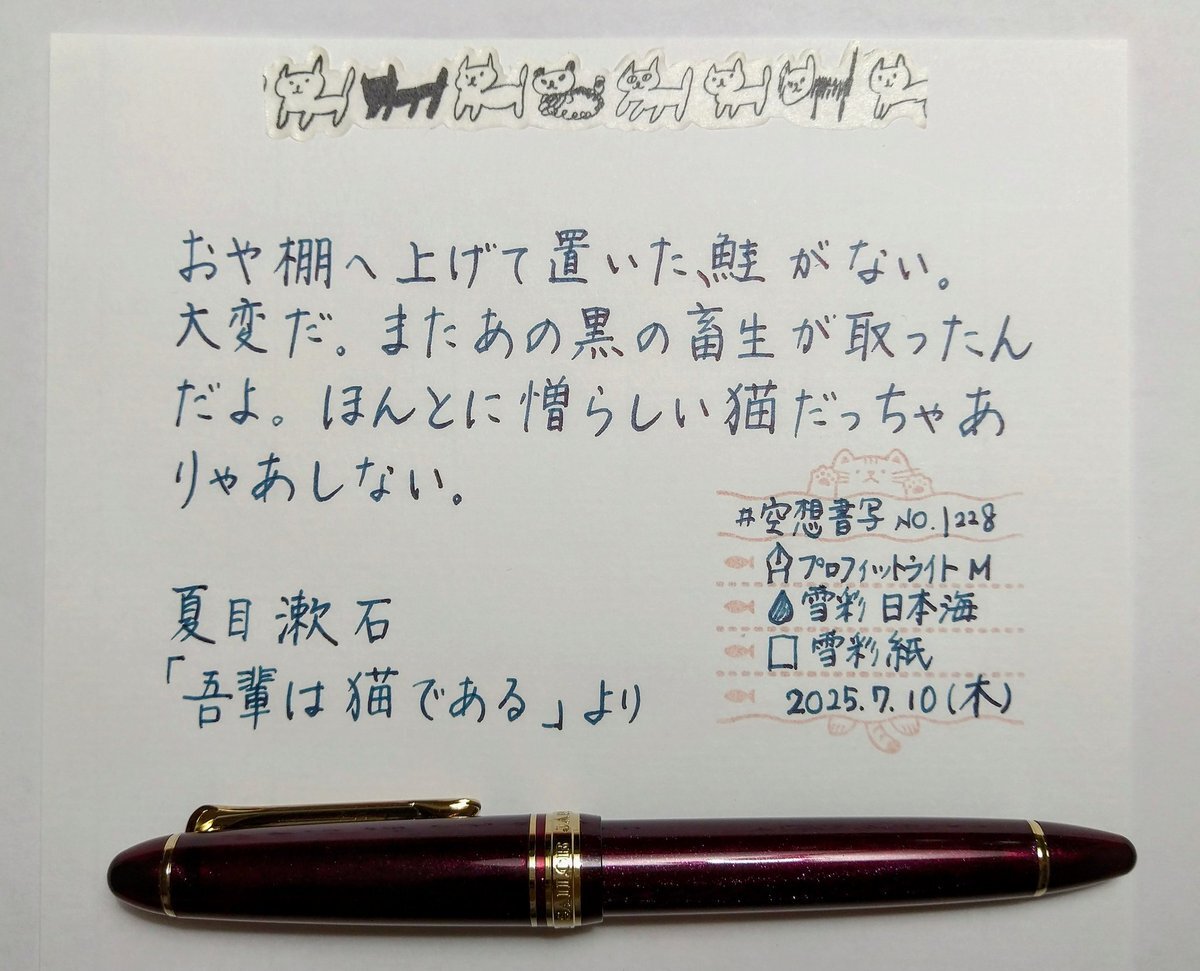 おや棚へ上げて置いた、鮭がない。
大変だ。またあの黒の畜生が取ったん
だよ。ほんとに憎らしい猫だっちゃあ
りゃあしない。
夏目漱石
「吾輩は猫である」より
#空想書写 NO.1228
プロフィットライト M
雪彩 日本海
雪彩紙
2025.7.10(木)